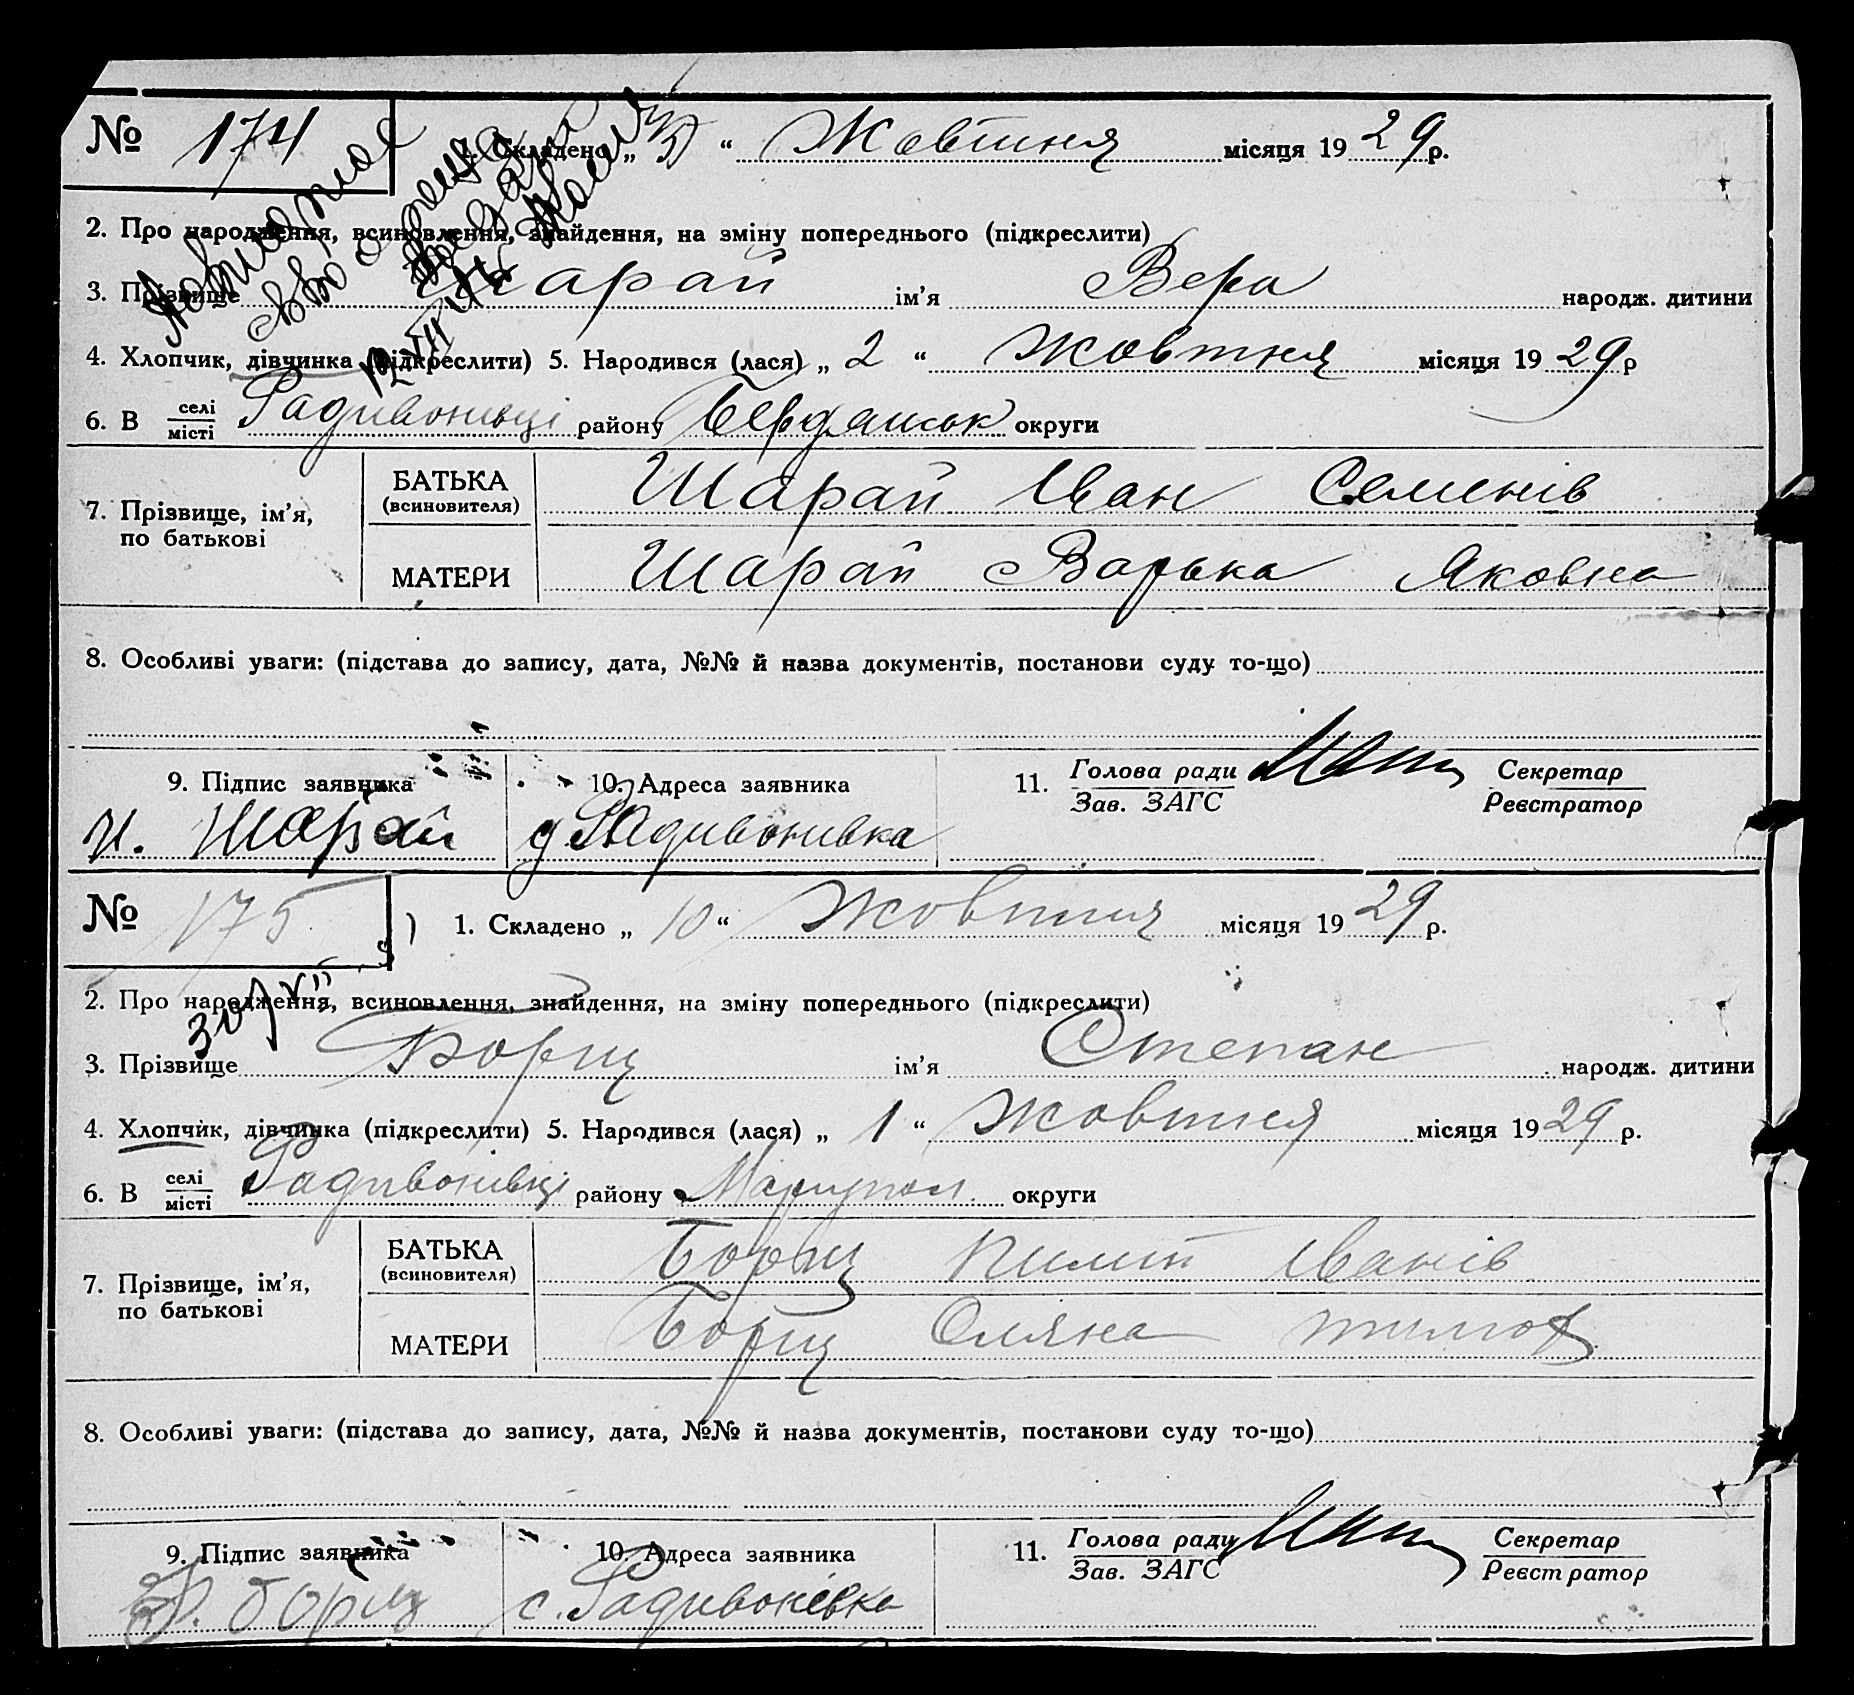 № 174
1. Складено „ “ Жовтня місяця 1929 р.
2. Про народження, всиновлення, знайдення, на зміну попереднього (підкреслити)
3. Прізвище Шарай ім’я Вера народж. дитини
4. Хлопчик, дівчинка (підкреслити) 5. Народився (лася) „ 2 “ жовтня місяця 1929 р
6. В селі місті Радивонівці району Бердянськ округи
7. Прізвище, ім’я, по батькові
БАТЬКА (всиновителя) Шарай Іван Семенів
МАТЕРИ Шарай Варька Яковна
8. Особливі уваги: (підстава до запису, дата, №№ й назва документів, постанови суду то-що)
9. Підпис заявника
И. Шарай
10. Адреса заявника
д. Радивонивка
11. Голова ради Секретар
Зав. ЗАГС Реєстратор
№ 175
1. Складено „ 10 “ жовтня місяця 1929 р.
2. Про народження, всиновлення, знайдення, на зміну попереднього (підкреслити)
3. Прізвище Борщ ім’я Степан народж. дитини
4. Хлопчик, дівчинка (підкреслити) 5. Народився (лася) „ 1 “ жовтня місяця 1929 р.
6. В селі місті Радивонівці району Маріупол. округи
7. Прізвище, ім’я, по батькові
БАТЬКА (всиновителя) Борщ Пилип Іванів
МАТЕРИ Борщ Оляна
8. Особливі уваги: (підстава до запису, дата, №№ й назва документів, постанови суду то-що)
9. Підпис заявника
Борщ
10. Адреса заявника
с. Радивонівка
11. Голова ради Секретар
Зав. ЗАГС Реєстратор